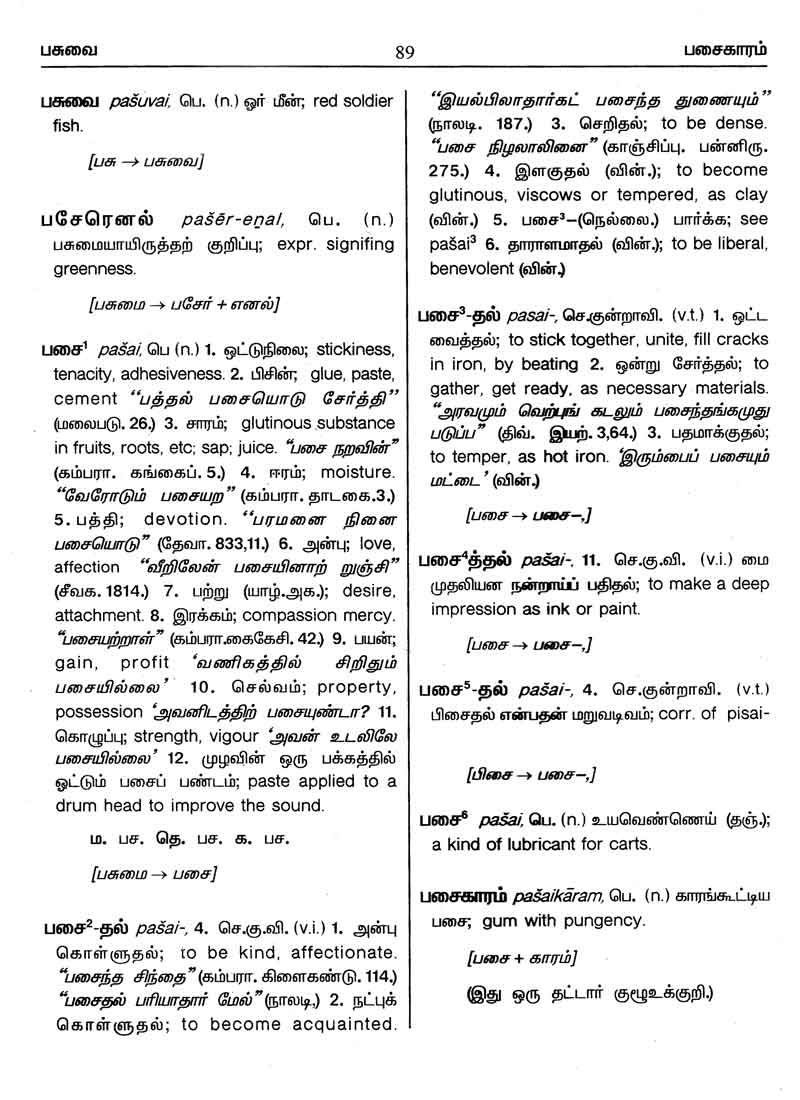 பசுவை
89
பசைகாரம்
பசுவை pašuvai, பெ. (n.) ஓர் மீன்; red soldier
fish.
[பசு → பசுவை]
பசேரெனல் pašēr-eṉal, பெ. (n.)
பசுமையாயிருத்தற் குறிப்பு; expr. signifing
greenness.
[பசுமை → பசேர் + எனல்]
பசை¹ pašai, பெ (n.) 1. ஒட்டுநிலை; stickiness,
tenacity, adhesiveness. 2. பிசின்; glue, paste,
cement “பத்தல் பசையொடு சேர்த்தி”
(மலைபடு. 26.) 3. சாரம்; glutinous substance
in fruits, roots, etc; sap; juice. “பசை நறவின்”
(கம்பரா. கங்கைப். 5.) 4. ஈரம்; moisture.
“வேரோடும் பசையற” (கம்பரா. தாடகை.3.)
5. பத்தி; devotion. “பரமனை நினை
பசையொடு” (தேவா. 833,11.) 6. அன்பு; love,
affection “வீறிலேன் பசையினாற் றுஞ்சி”
(சீவக. 1814.) 7. பற்று (யாழ்.அக.); desire,
attachment. 8. இரக்கம்; compassion mercy.
“பசையற்றாள்” (கம்பரா.கைகேசி. 42.) 9. பயன்;
gain, profit ‘வணிகத்தில் சிறிதும்
பசையில்லை’ 10. செல்வம்; property,
possession ‘அவனிடத்திற் பசையுண்டா? 11.
கொழுப்பு; strength, vigour ‘அவன் உடலிலே
பசையில்லை’ 12. முழவின் ஒரு பக்கத்தில்
ஓட்டும் பசைப் பண்டம்; paste applied to a
drum head to improve the sound.
ம. பச. தெ. பச. க. பச.
[பசுமை → பசை]
பசை²-தல் pašai-, 4. செ.கு.வி. (v.i.) 1. அன்பு
கொள்ளுதல்; to be kind, affectionate.
“பசைந்த சிந்தை” (கம்பரா. கிளைகண்டு. 114.)
“பசைதல் பரியாதார் மேல்” (நாலடி,) 2. நட்புக்
கொள்ளுதல்; to become acquainted.
“இயல்பிலாதார்கட் பசைந்த துணையும்”
(நாலடி. 187.) 3. செறிதல்; to be dense.
“பசை நிழலாலினை” (காஞ்சிப்பு. பன்னிரு.
275.) 4. இளகுதல் (வின்.); to become
glutinous, viscows or tempered, as clay
(வின்.) 5. பசை³–(நெல்லை.) பார்க்க; see
pašai³ 6. தாராளமாதல் (வின்.); to be liberal,
benevolent (வின்.)
பசை³-தல் pasai-, செ.குன்றாவி. (v.t.) 1. ஒட்ட
வைத்தல்; to stick together, unite, fill cracks
in iron, by beating 2. ஒன்று சேர்த்தல்; to
gather, get ready, as necessary materials.
“அரவமும் வெற்புங் கடலும் பசைந்தங்கமுது
படுப்ப” (திவ். இயற். 3,64.) 3. பதமாக்குதல்;
to temper, as hot iron. ‘இரும்பைப் பசையும்
மட்டை’ (வின்.)
[பசை → பசை–,]
பசை⁴த்தல் pašai-, 11. செ.கு.வி. (v.i.) மை
முதலியன நன்றாய்ப் பதிதல்; to make a deep
impression as ink or paint.
[பசை → பசை–,]
பசை⁵-தல் pašai-, 4. செ.குன்றாவி. (v.t.)
பிசைதல் என்பதன் மறுவடிவம்; corr. of pisai-
[பிசை → பசை–,]
பசை⁶ pašai, பெ. (n.) உயவெண்ணெய் (தஞ்.);
a kind of lubricant for carts.
பசைகாரம் pašaikāram, பெ. (n.) காரங்கூட்டிய
பசை; gum with pungency.
[பசை + காரம்]
(இது ஒரு தட்டார் குழூஉக்குறி.)